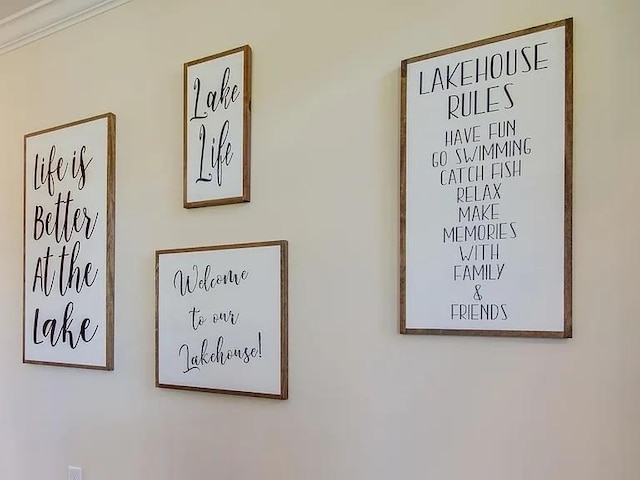 Life is
Better
At the
Lake
Lake
Life
Welcome
to our
Lakehouse!
LAKEHOUSE
RULES
HAVE FUN
GO SWIMMING
CATCH FISH
RELAX
MAKE
MEMORIES
WITH
FAMILY
&
FRIENDS